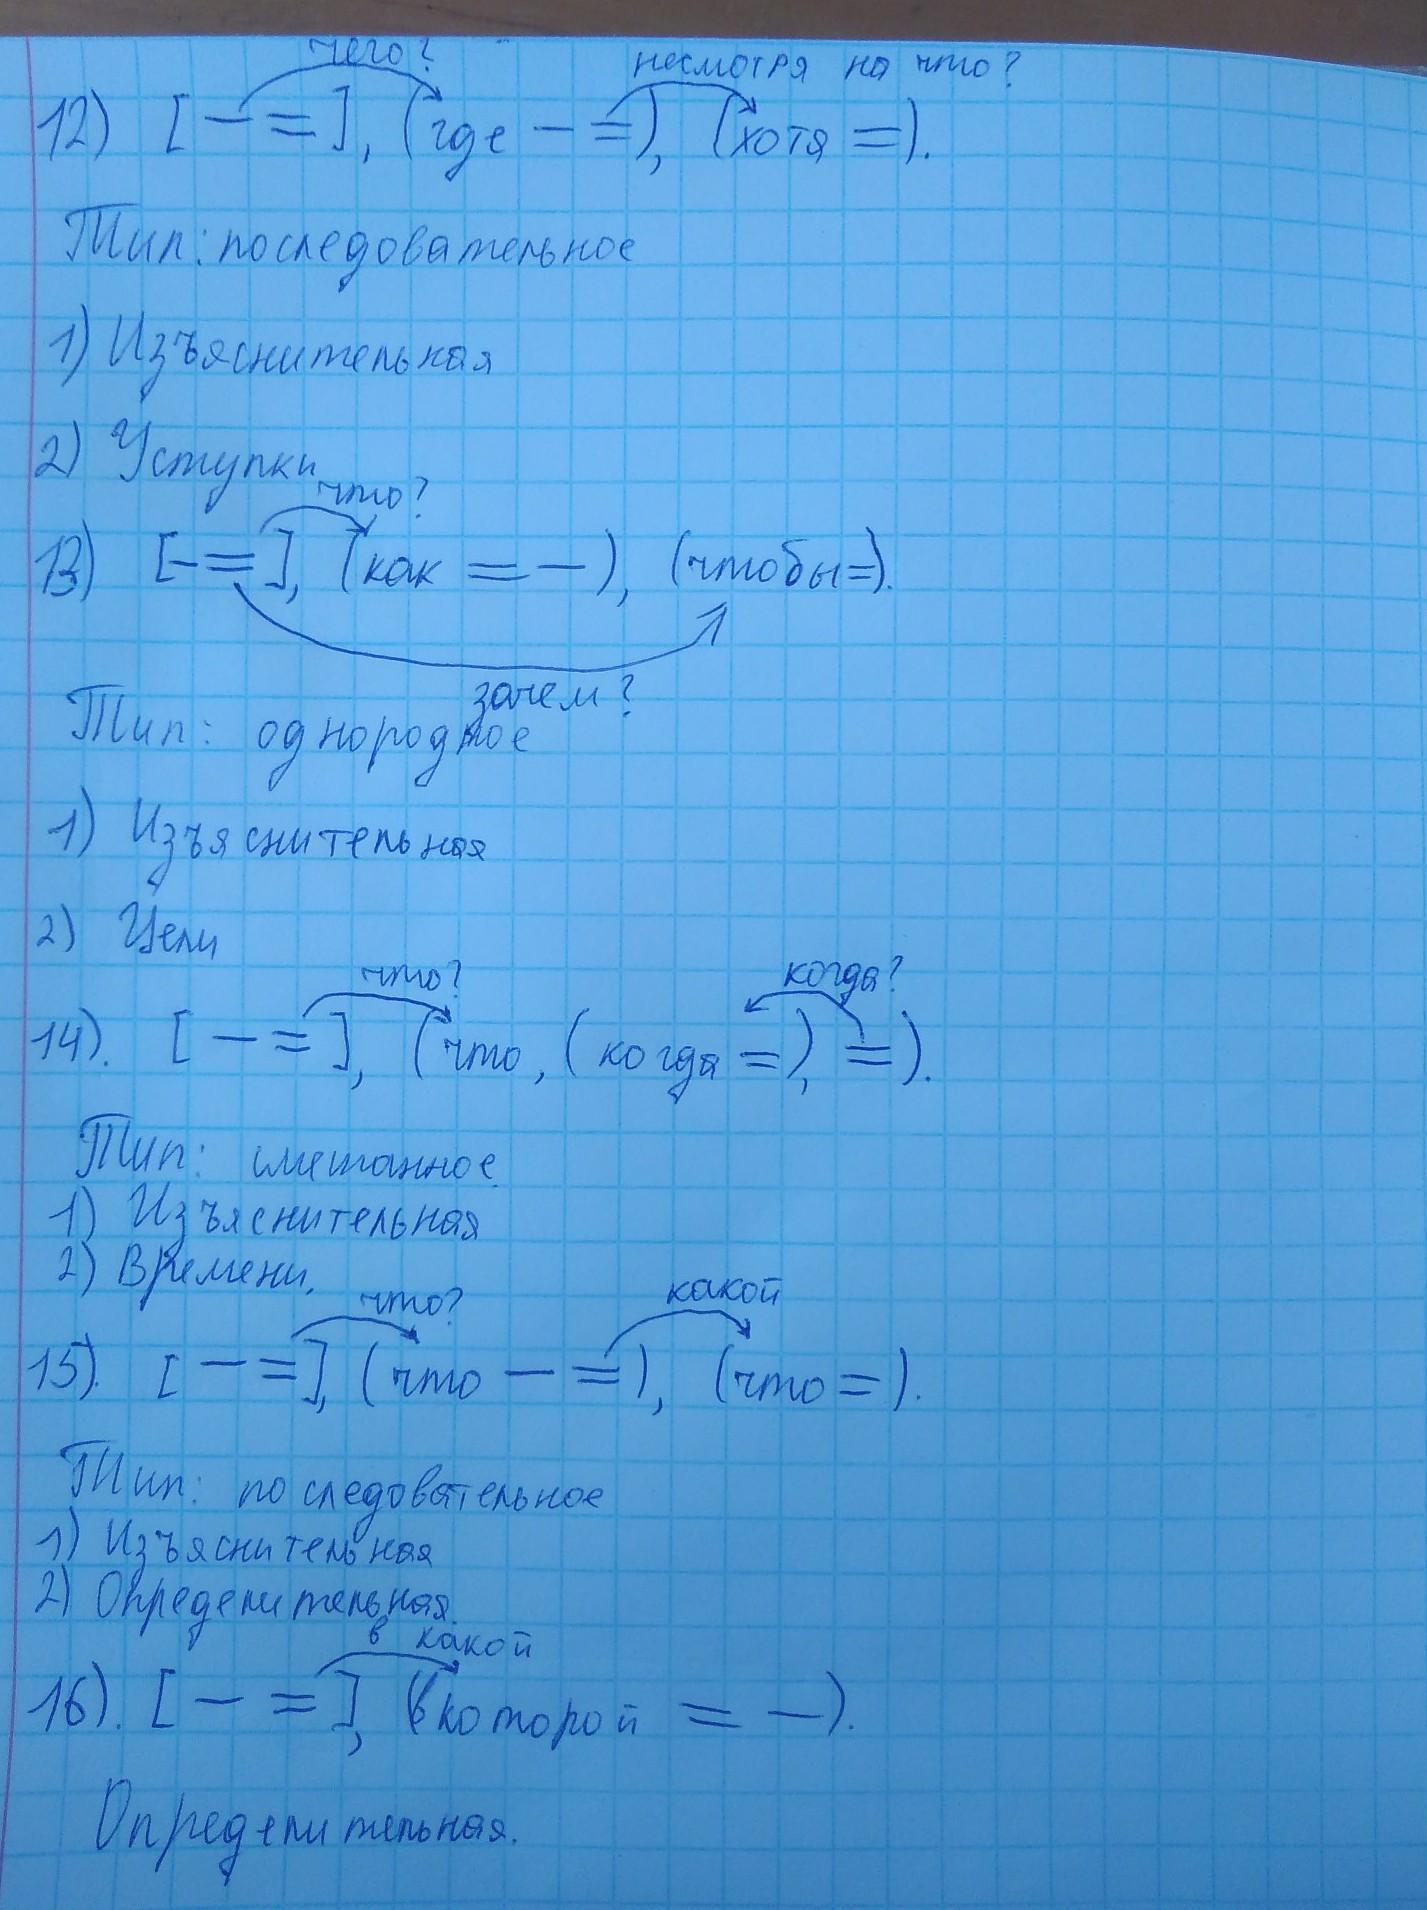 чего? несмотря на что?
12) [ — = ], (где — =), (хотя =).
Тип: последовательное
1) Изъяснительная
2) Уступки
что?
13) [- = ], (как = —), (чтобы =).
зачем?
Тип: однородное
1) Изъяснительная
2) Цели
что? когда?
14). [ — = ], (что, (когда =), =).
Тип: смешанное
1) Изъяснительная
2) Времени.
что? какой
15). [ — = ], (что — =), (что =).
Тип: последовательное
1) Изъяснительная
2) Определительная.
в какой
16). [ — = ], (в которой = —).
Определительная.